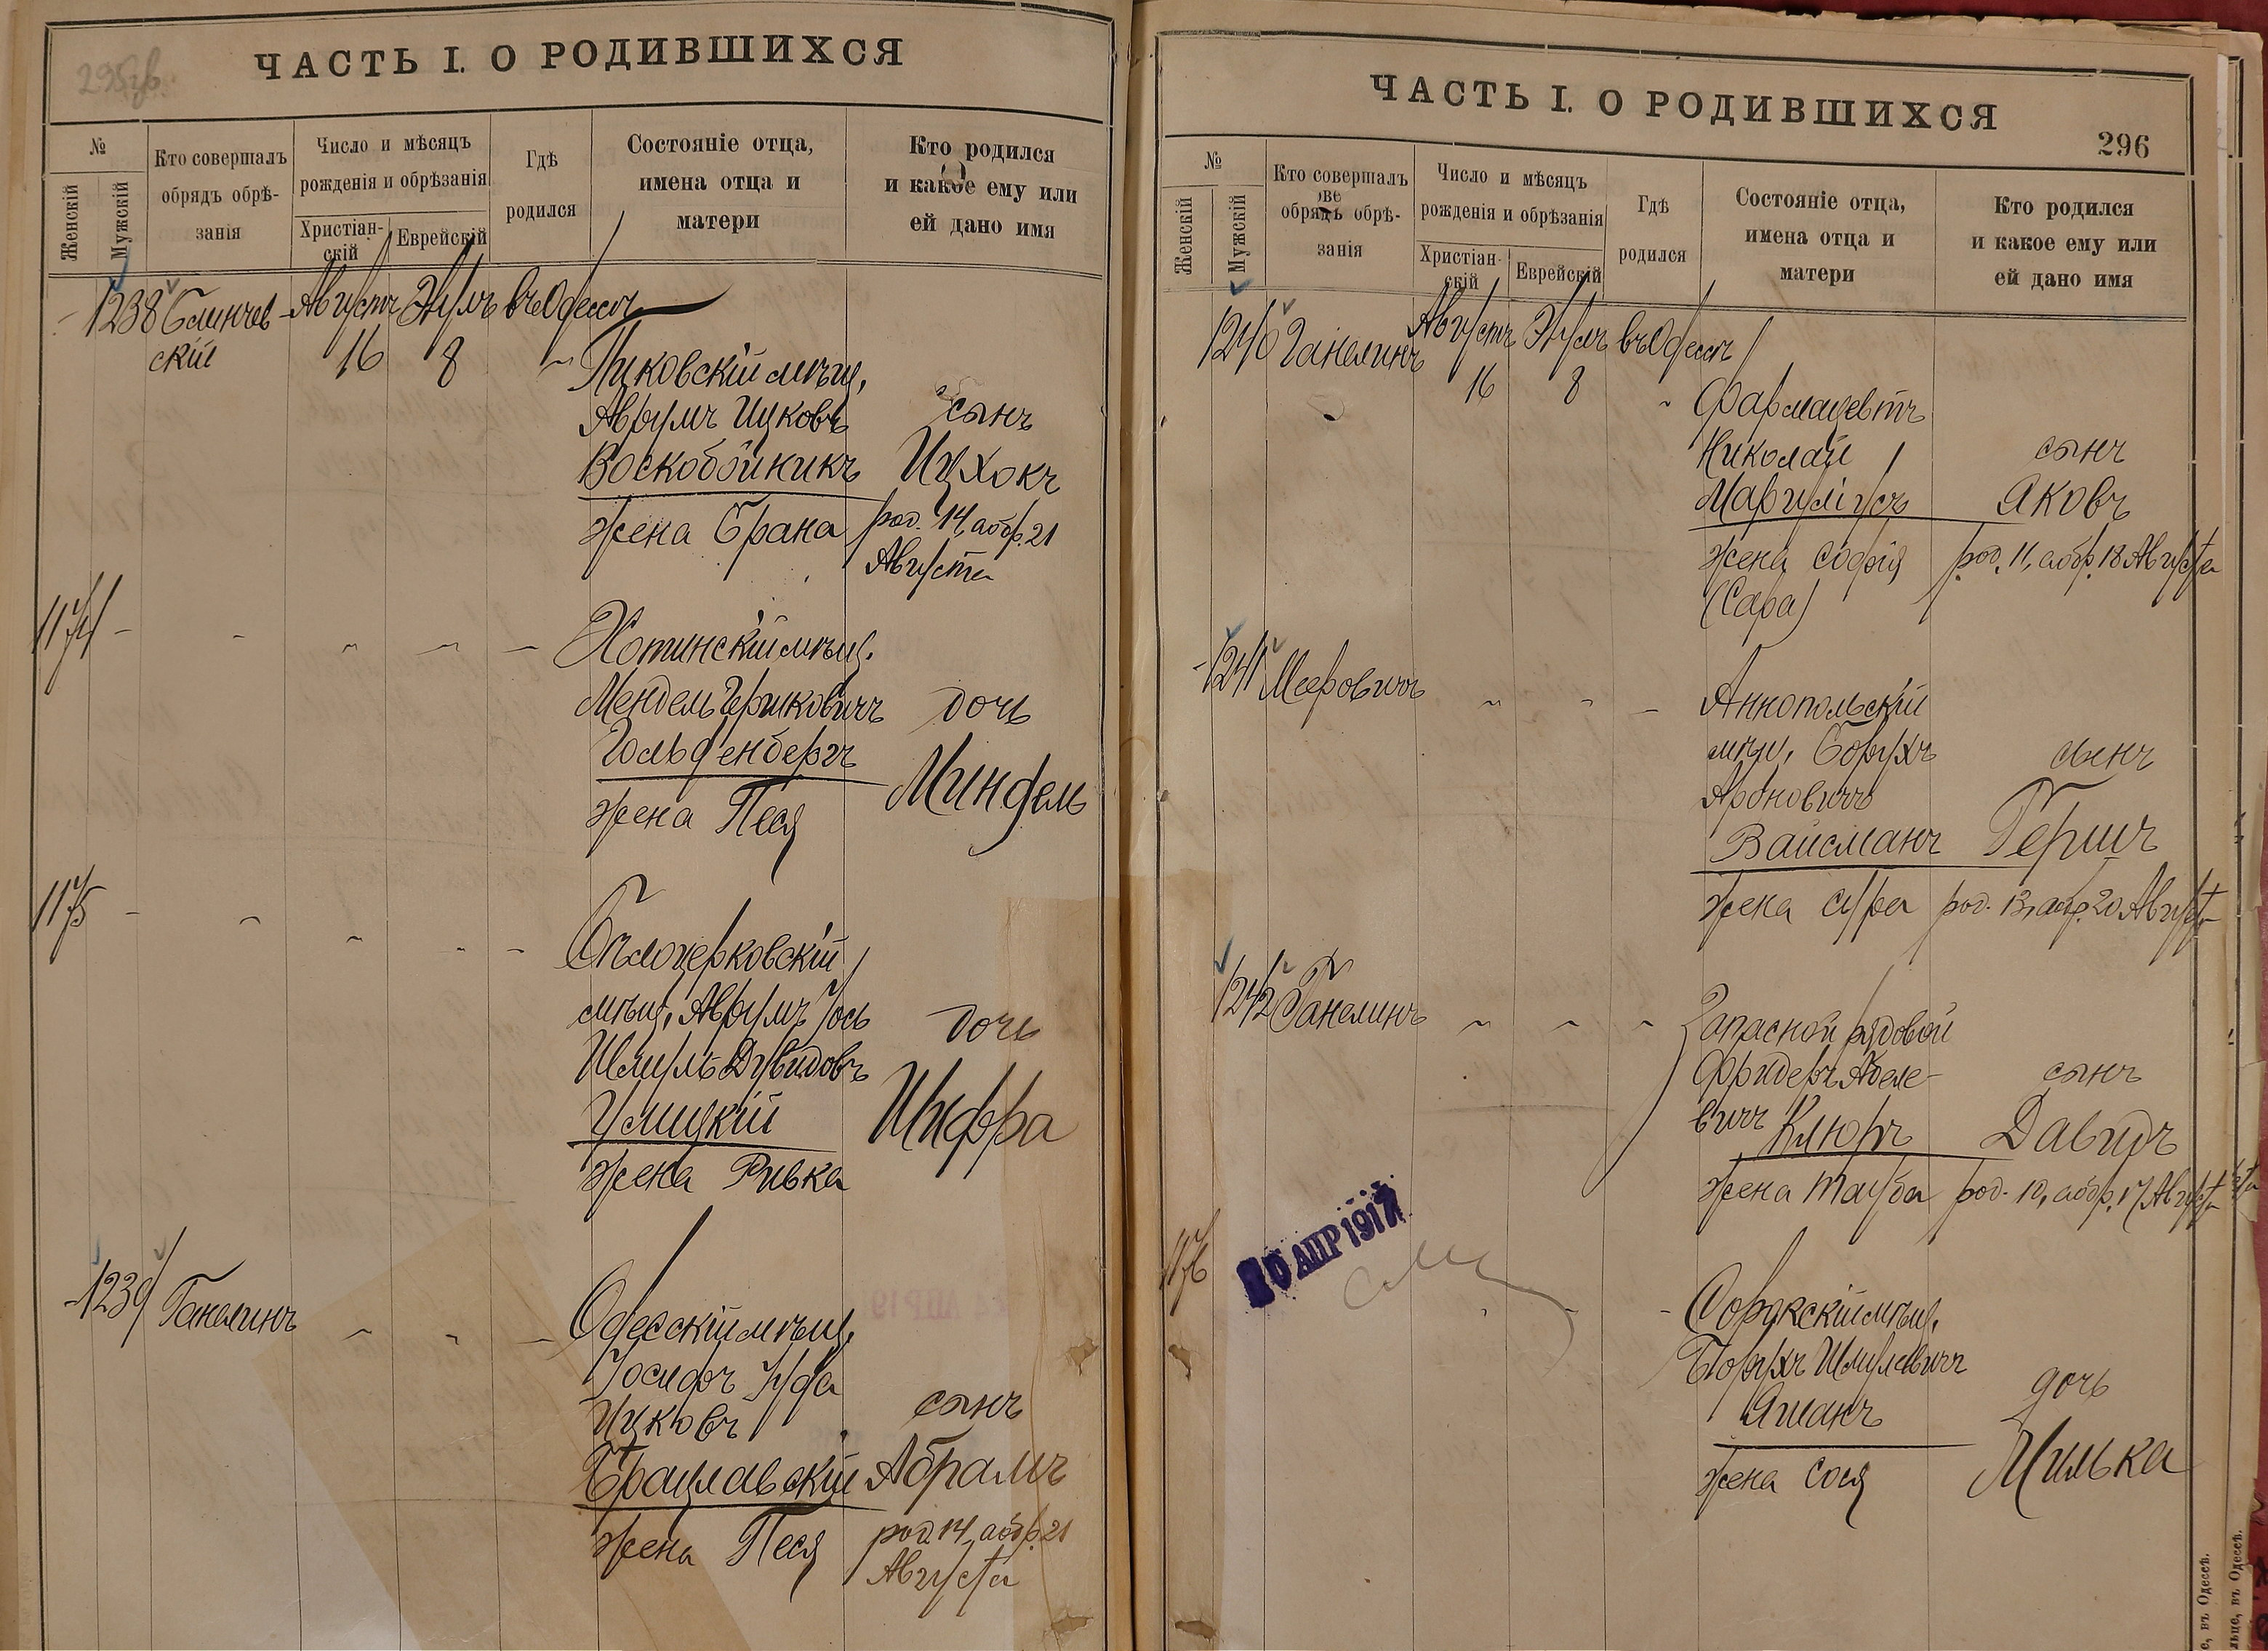 295об.
ЧАСТЬ I. О РОДИВШИХСЯ
№
Женскій
Мужскій
Кто совершалъ
обрядъ обрѣ-
занія
Число и мѣсяцъ
рожденія и обрѣзанія
Христіан-
скій
Еврейскій
Гдѣ
родился
Состояніе отца,
имена отца и
матери
Кто родился
и какое ему или
ей дано имя
1238 Слинчев- Августъ Элулъ въ Одессѣ
скій 16 8
Пиковскій мѣщ.
Аврумъ Ицковъ сынъ
Воскобойникъ Ицхокъ
жена Брана род. 14, а обр. 21
Августа
1174
Хотинскій мѣщ.
Мендель Гершковичъ дочь
Гольденбергъ
Миндель
жена Песя
1175
Бѣлоцерковскій
мѣщ. Аврумъ Iось дочь
Шмуль Дувидовъ
Улицкій Шифра
жена Ривка
1239 Ганелинъ
Одесскій мѣщ.
Іосифъ Іуда
Ицковъ сынъ
Брацлавскій Абрамъ
жена Песя род. 14, а обр. 21
Августа
ЧАСТЬ I. О РОДИВШИХСЯ
296
№
Женскій
Мужскій
Кто совершалъ
обрядъ обрѣ-
занія
Число и мѣсяцъ
рожденія и обрѣзанія
Христіан-
скій
Еврейскій
Гдѣ
родился
Состояніе отца,
имена отца и
матери
Кто родился
и какое ему или
ей дано имя
1240 Ганелинъ Августъ Элулъ въ Одессѣ
16 8
Фармацевтъ
Николай сынъ
Маргулiусъ Яковъ
жена Софія род. 11, а обр. 18 Августа
(Сара)
1241 Мееровичъ
Аннопольскій
мѣщ. Борухъ сынъ
Ароновичъ
Вайсманъ Гершъ
жена Сура род. 13, а обр. 20 Августа
1242 Ганелинъ
Запасной рядовой
Фридеръ Абеле- сынъ
вичъ Клюръ Давидъ
жена Тауба род. 10, а обр. 17 Августа
1176
АПР 1917
Сорокскій мѣщ.
Борухъ Шмулевичъ дочь
Яманъ
жена Сося Милька
е, въ Одессѣ.
въ Одессѣ.